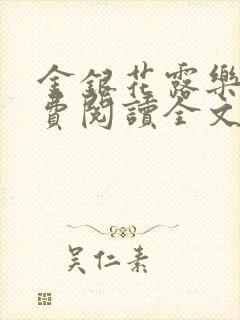 金銀花露樂
費閱讀全文
吴仁素